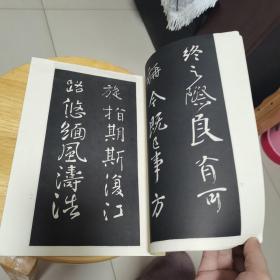 終之際良有可
稱今既戎事方
旋指期斯復江
路悠緬風濤浩